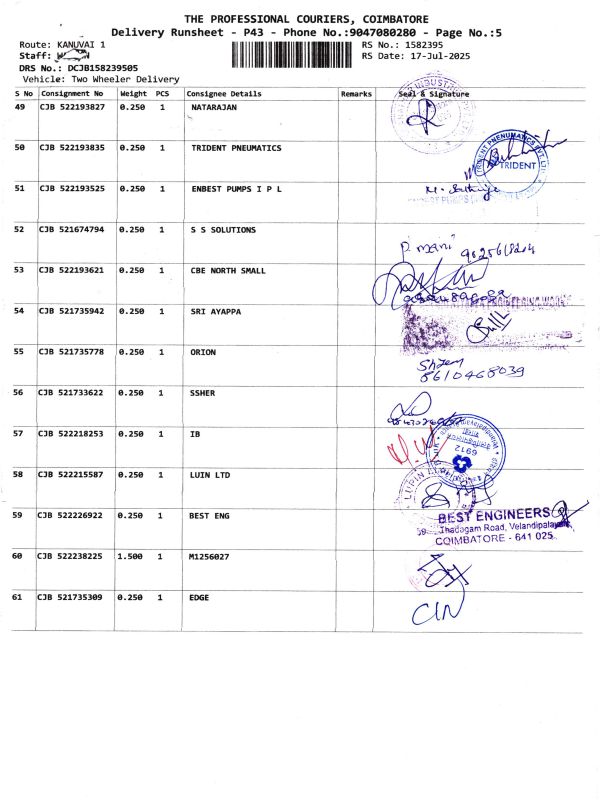 THE PROFESSIONAL COURIERS, COIMBATORE
Delivery Runsheet - P43 - Phone No.:9047080280 - Page No.:5
Route: KANUVAI 1
RS No.: 1582395
Staff:
RS Date: 17-Jul-2025
DRS No.: DCJB158239505
Vehicle: Two Wheeler Delivery
S No Consignment No Weight PCS Consignee Details Remarks Seal & Signature
49 CJB 522193827 0.250 1 NATARAJAN
50 CJB 522193835 0.250 1 TRIDENT PNEUMATICS
TRIDENT
51 CJB 522193525 0.250 1 ENBEST PUMPS I P L
52 CJB 521674794 0.250 1 S S SOLUTIONS
P. mani
53 CJB 522193621 0.250 1 CBE NORTH SMALL
54 CJB 521735942 0.250 1 SRI AYAPPA
55 CJB 521735778 0.250 1 ORION
8610468039
56 CJB 521733622 0.250 1 SSHER
57 CJB 522218253 0.250 1 IB
6912
58 CJB 522215587 0.250 1 LUIN LTD
59 CJB 522226922 0.250 1 BEST ENG
BEST ENGINEERS
Thadagam Road, Velandipalayam
COIMBATORE - 641 025.
60 CJB 522238225 1.500 1 M1256027
61 CJB 521735309 0.250 1 EDGE